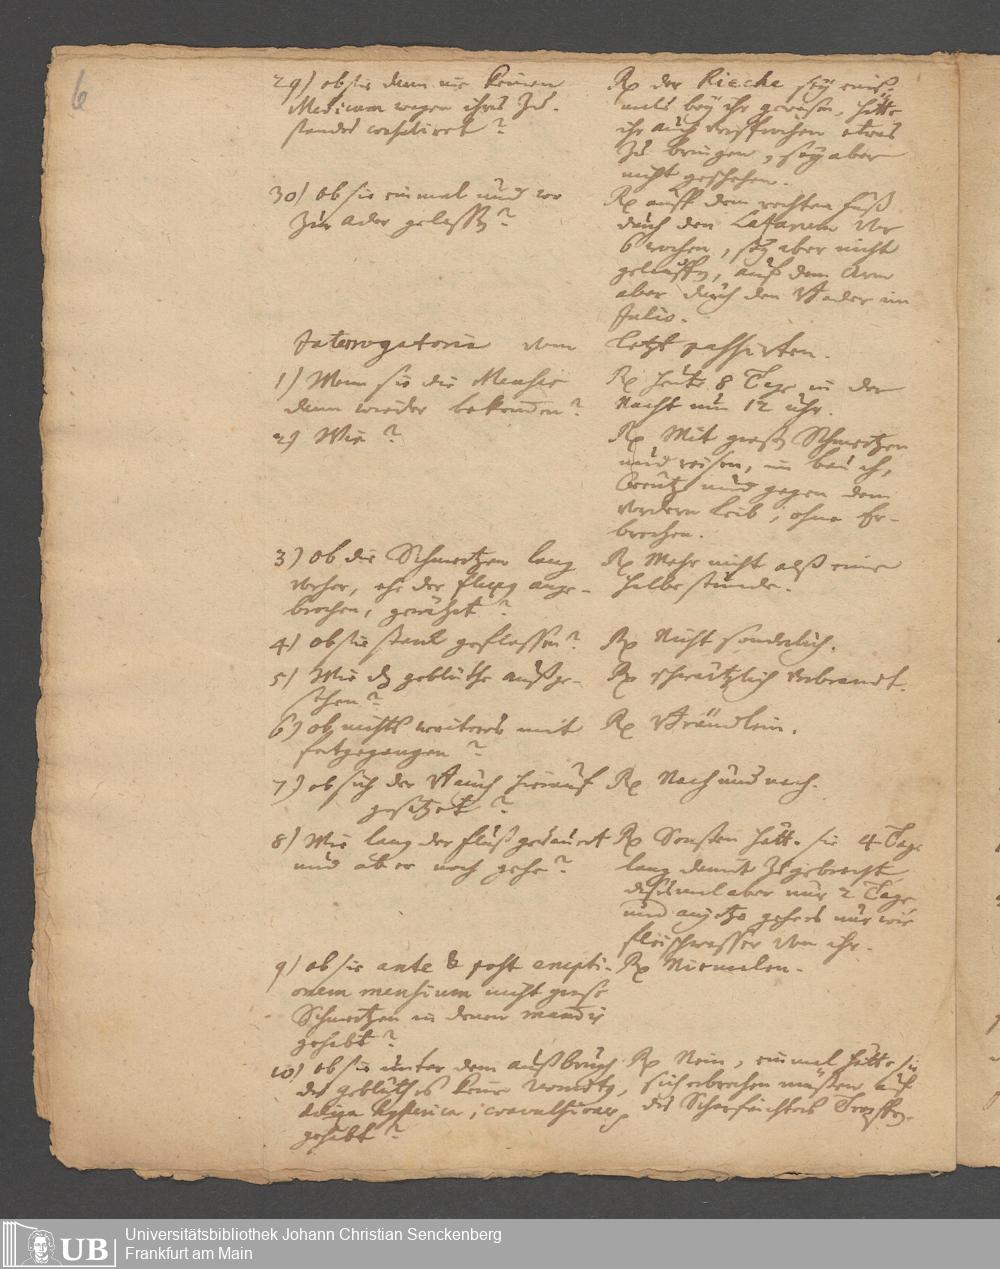 6
29) ob sie dann nie keinen
Medicum wegen ihres Zu-
standes consuliret?
Rp der Riecke sey eins-
mals bey ihr gewesen, hätte
ihr auch versprochen etwas
zu bringen, sey aber
nicht geschehen.
30) ob sie einmal und wo
zur ader gelassen?
Rp auff dem rechten fuß
durch den
6 wochen, sey aber nicht
geloffen, auf dem Arm
aber durch den ader im
Julio.
Interrogatoria vom letzt passirten.
1) Wenn sie die Menses
dann wieder bekommen?
Rp heute 8 Tage in der
Nacht um 12 uhr.
2) Wie?
Rp Mit großen Schmertzen
und reisen, im bauch,
Creutz und gegen dem
vordern Leib, ohne Er-
brechen.
3) ob die Schmertzen lang
vorher, ehe der fluß ange-
brochen, gewährt?
Rp Mehr nicht alß eine
halbe stunde.
4) ob sie starck geflossen?
Rp Nicht sonderlich.
5) Wie dz geblüthe außge-
sehen?
Rp schwärtzlich verbrandt.
6) ob nichts weiteres mit
fortgegangen?
Rp
7) ob sich der bauch hierauf
gesetzet?
Rp Nach und nach.
8) Wie lang der fluß gedauert
und ob er noch gehe?
Rp Sonsten hätte sie 4 Tage
lang damit zugebracht
diesesmal aber nur 2 Tage
und anjetzo gehe es nur wie
fleischwasser von ihr.
9) ob sie ante & post erupti-
onem mensium nicht große
Schmertzen in denen
gehabt?
Rp Niemalen.
10) ob sie unter dem außbruch
des geblüthes keine
hysterica, convulsiones
gehabt?
Rp Nein, einmal hätte sie
sich erbrechen müßen auf
des Scharfrichters Tropffen.
UB
Universitätsbibliothek Johann Christian Senckenberg
Frankfurt am Main